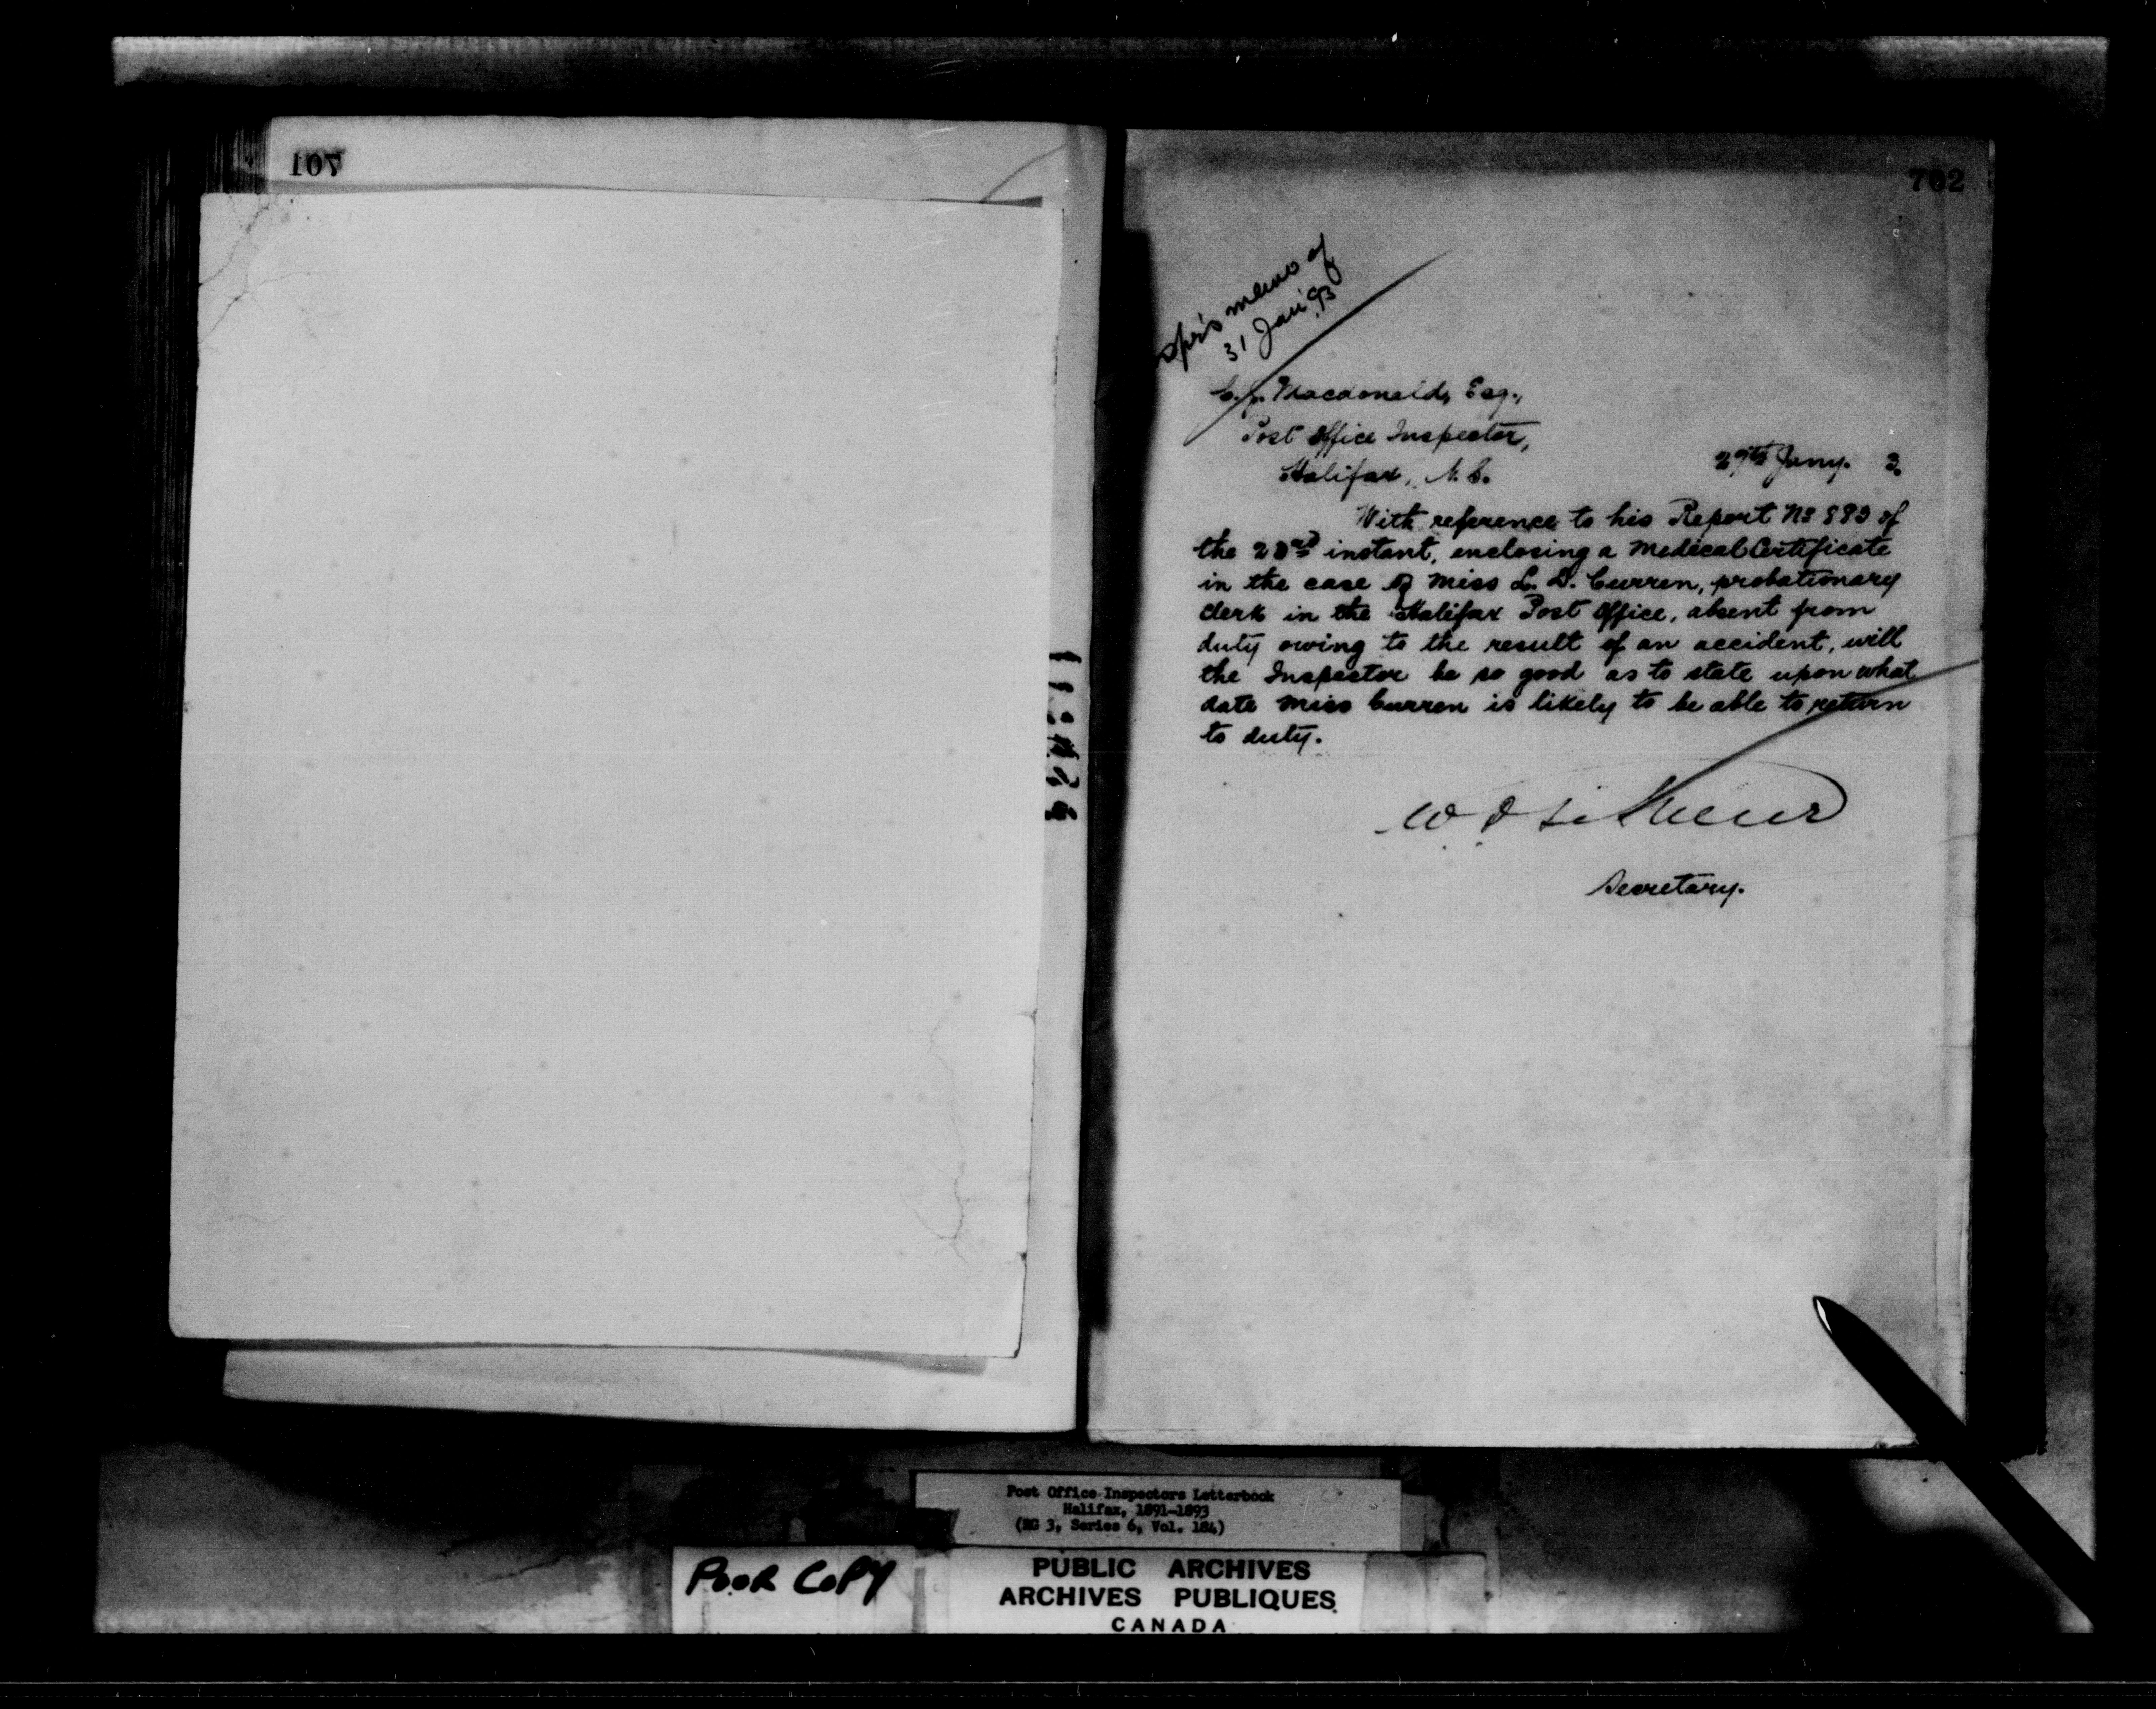 107
702
memo of
31 Jan'93
C. J. Macdonald, Esq.,
Post Office Inspector,
Halifax, N.S.
Jany. 3.
With reference to his Report No of
the 23rd instant, enclosing a Medical Certificate
in the case of Miss L. D. Curren, probationary
clerk in the Halifax Post Office, absent from
duty owing to the result of an accident, will
the Inspector be so good as to state upon what
date Miss Curren is likely to be able to return
to duty.
Secretary.
Post Office Inspectors Letterbook
Halifax, 1891-1893
(RG 3, Series 6, Vol. 184)
POOR COPY
PUBLIC ARCHIVES
ARCHIVES PUBLIQUES
CANADA